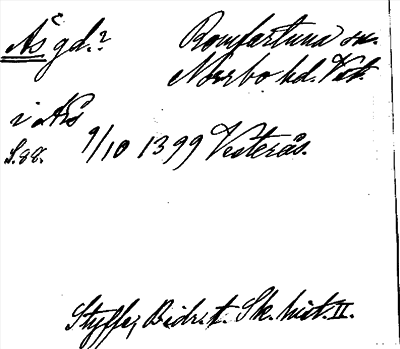 Ås gd.? Romfartuna sn.
Norrbo hd. Vstm.
i Aas
S. 88. 9/10 1399 Vesterås.
Styffe, Bidr. t. Sk. hist. II.